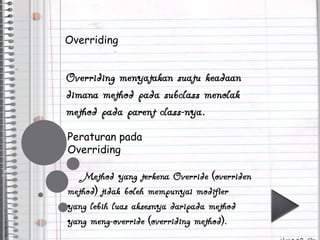 Overriding
Overriding menyatakan suatu keadaan
dimana method pada subclass menolak
method pada parent class-nya.
Peraturan pada
Overriding
Method yang terkena Override (overriden
method) tidak boleh mempunyai modifier
yang lebih luas aksesnya daripada method
yang meng-override (overriding method).